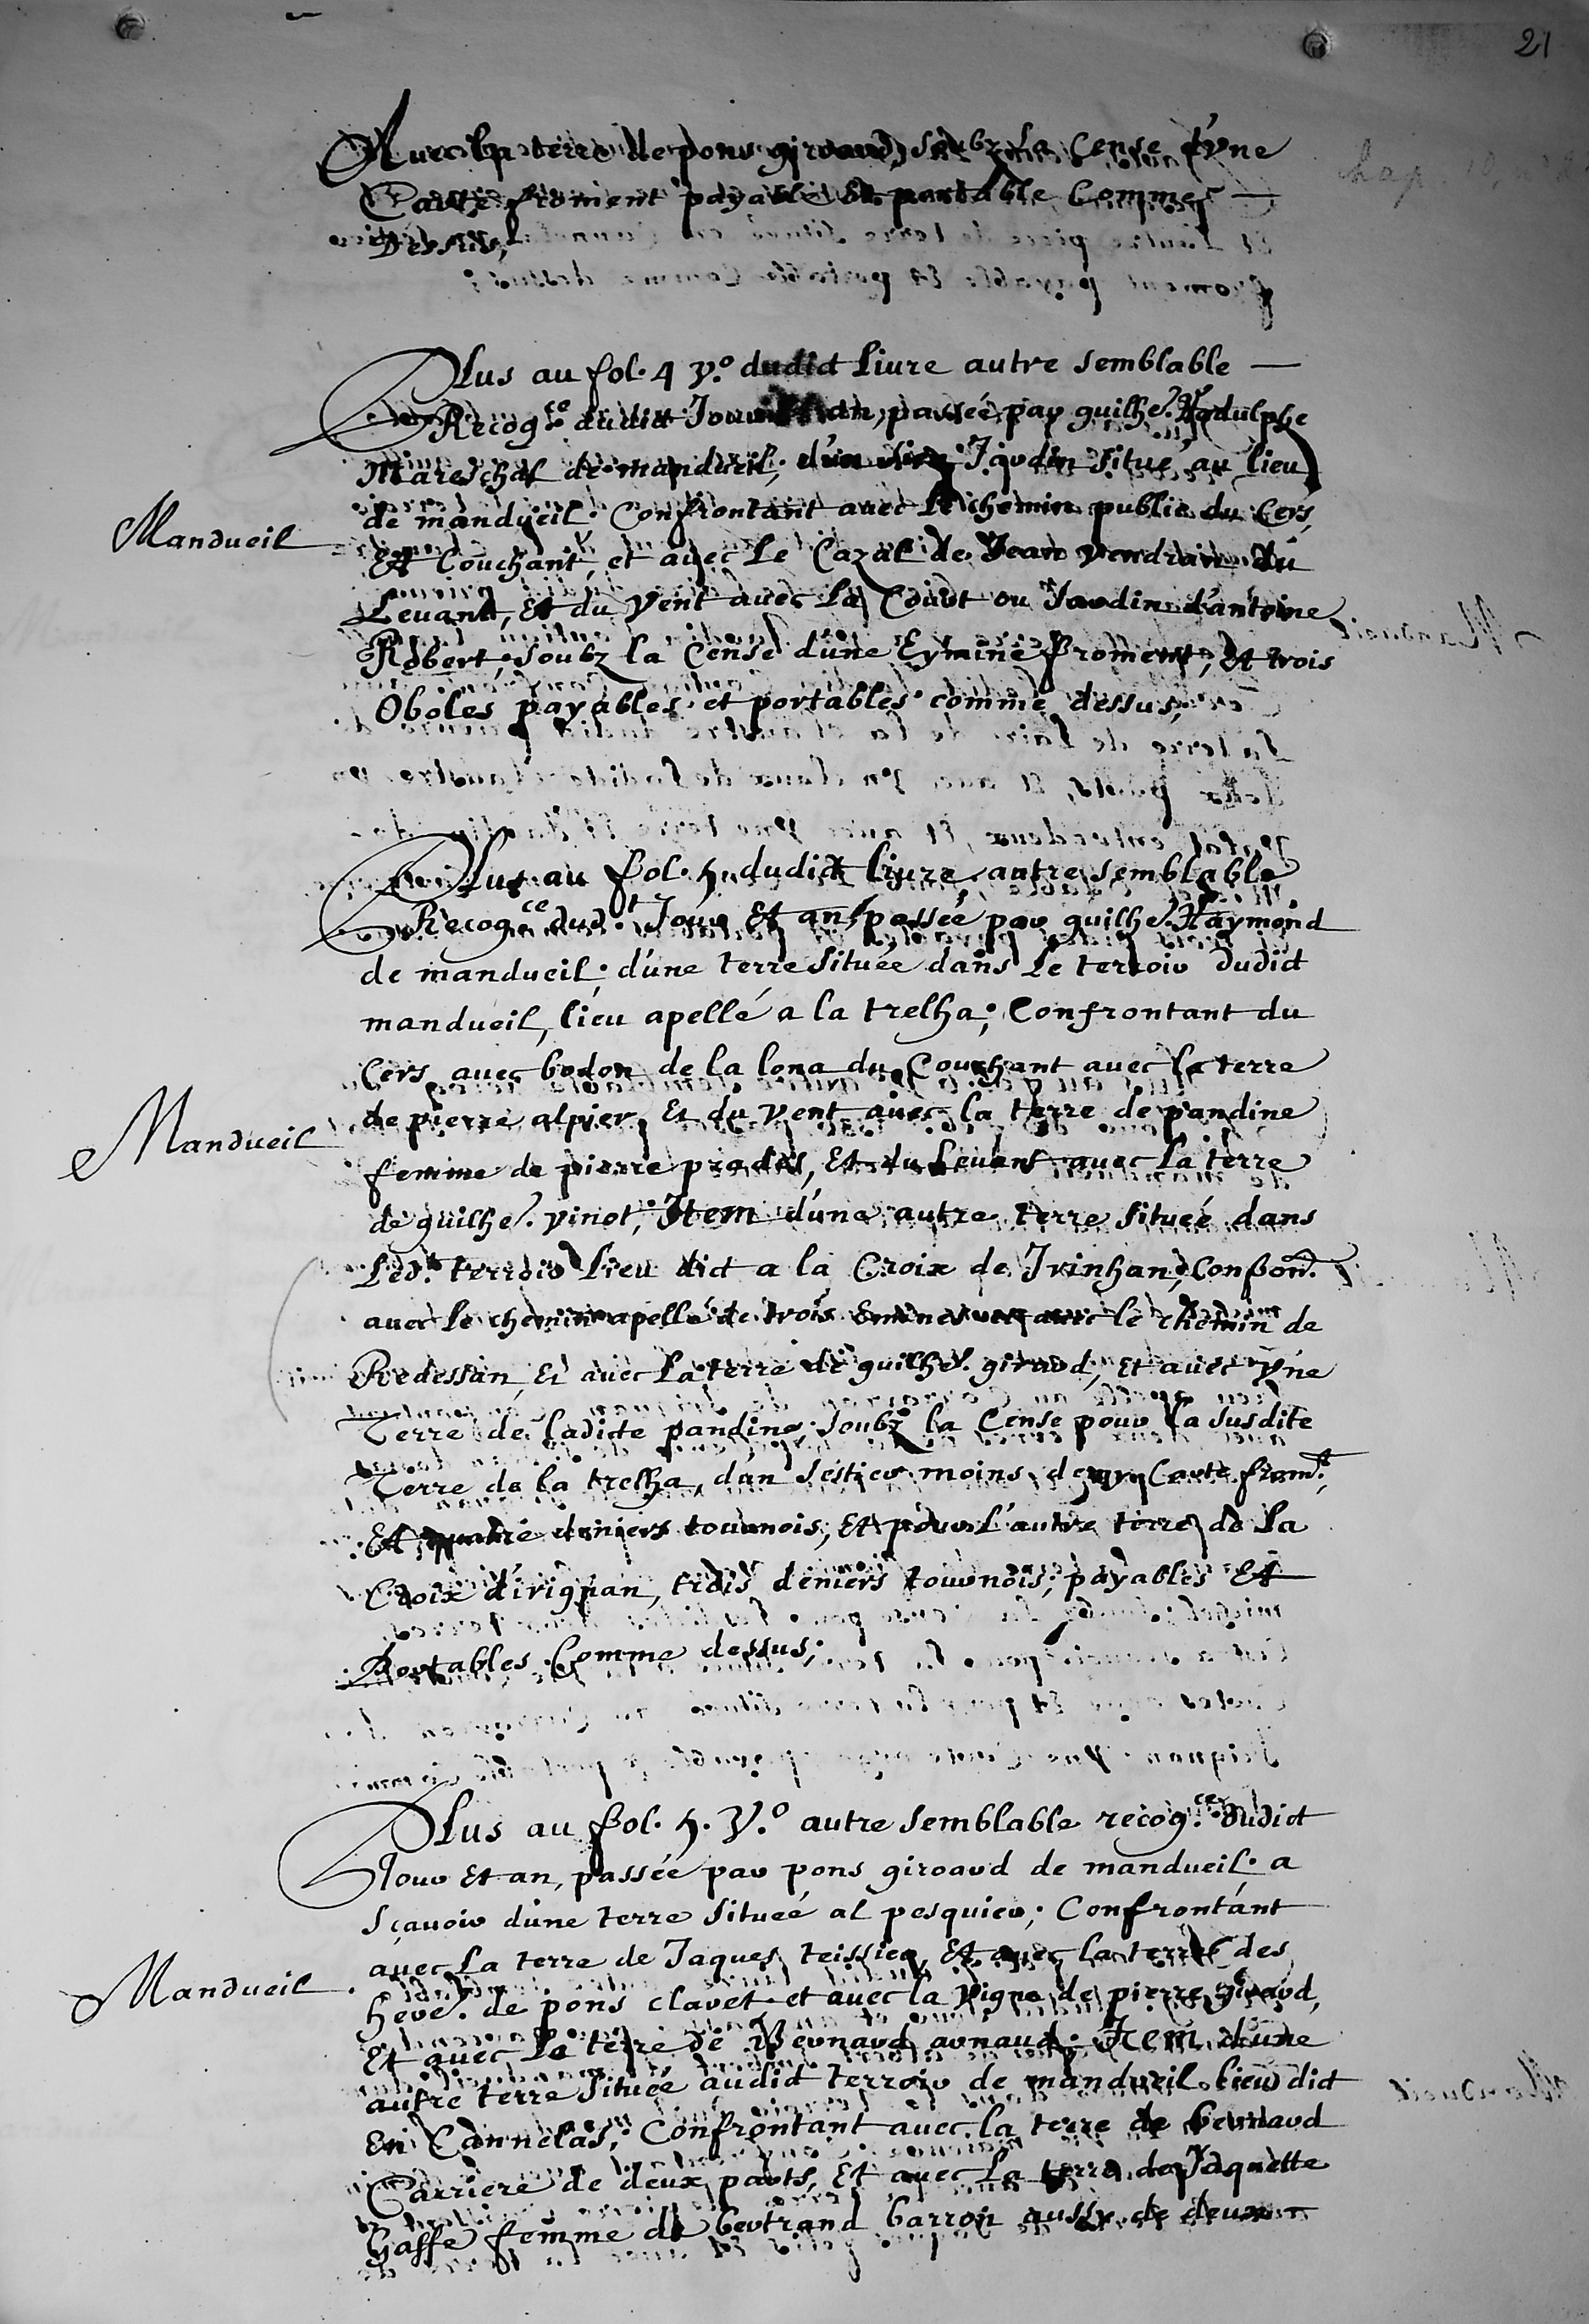 21
Avec la terre de pons giraud, soubz la Cense d'vne
Carte froment payable et portable Comme
Dessus,
Plus au fol. 4 v.º dudict Liure autre semblable
Recog.ce dudit Jour et an, passée par guilhe. Radulphe
Mareschal de mandueil; d'un sien Jardin situé au lieu
de mandueil. Confrontant auec Le chemin public du Cers,
Mandueil
Et Couchant, et auec Le Cazal de Jean vendran du
Leuant, Et du vent auec La Court ou Jardin d'antoine
Robert, soubz la Cense d'une Eymine froment, Et trois
Oboles payables et portables comme dessus,
Plus au fol. 5. dudict liure autre semblable
Recog.ce dud.t Jour Et an, passée par guilhe. Raymond
de mandueil; d'une terre située dans Le terroir dudict
mandueil, lieu apellé a la trelha; Confrontant du
Cers auec bodon de la lona du Couchant auec la terre
Mandueil
de pierre alpier, Et du vent auec la terre de pandine
femme de pierre prades, Et du Leuant auec La terre
de guilhe. vinot, Item d'une autre terre située dans
Led.t terroir Lieu dict a la Croix de Irinhan, Confron.t
auec Le chemin apellé de trois Emines et auec le chemin de
Redessan, Et auec La terre de guilhe. giraud, Et auec vne
Terre de ladicte pandine, soubz la Cense pour la susdite
Terre de la trelha, d'un sestier moins demy Carte from.t,
Et quatre deniers tournois, Et pour L'autre terre de La
Croix d'irignan, trois deniers tournois, payables Et
Portables Comme dessus;
Plus au fol. 5. V.º autre semblable recog.ce dudict
Jour Et an, passée par pons giroaud de mandueil. a
Sçauoir d'une terre située al pesquier; Confrontant
auec La terre de Jaques teissier, Et auec la terre des
Mandueil
here. de pons clauet, et auec la vigne de pierre giraud,
Et auec La terre de Bernard arnaud; Item d'une
autre terre située audict terroir de mandueil lieu dict
En Cannelas; Confrontant auec la terre de bernard
Carriere de deux parts, Et auec La terre de Jaquette
Gasse femme de bertrand barron aussy de deux